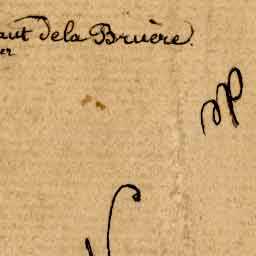 aut dela Bruère.
er